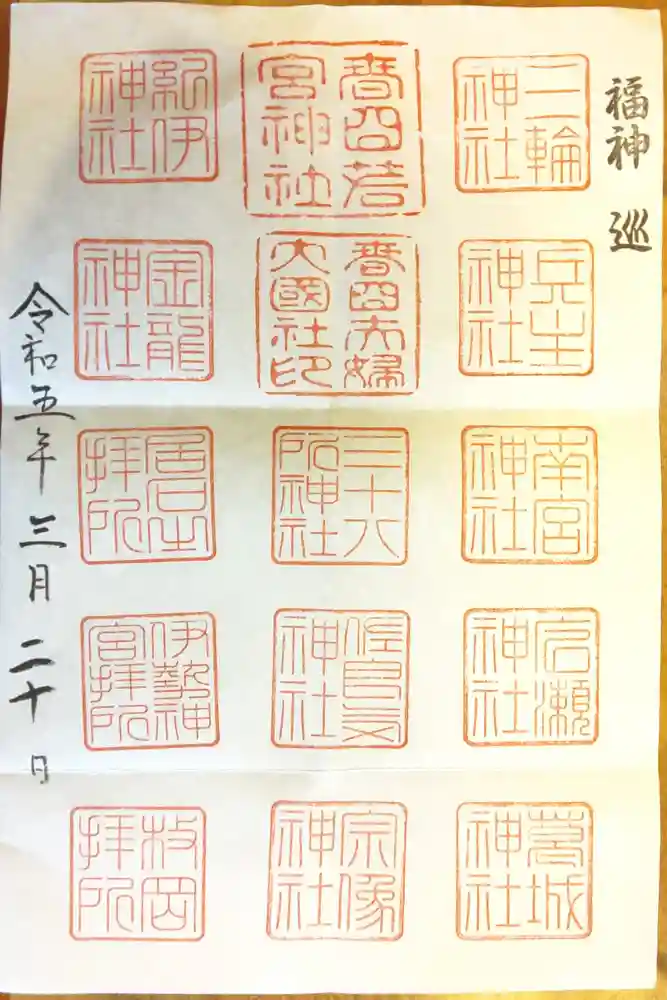 福神 巡
三輪
神社
兵主
神社
南宮
神社
広瀬
神社
葛城
神社
春日若
宮神社
春日夫婦
大國社印
三十八
所神社
佐良气
神社
宗像
神社
紀伊
神社
金龍
神社
拝所
伊勢神
宮拝所
枚岡
拝所
令和五年 三月 二十日